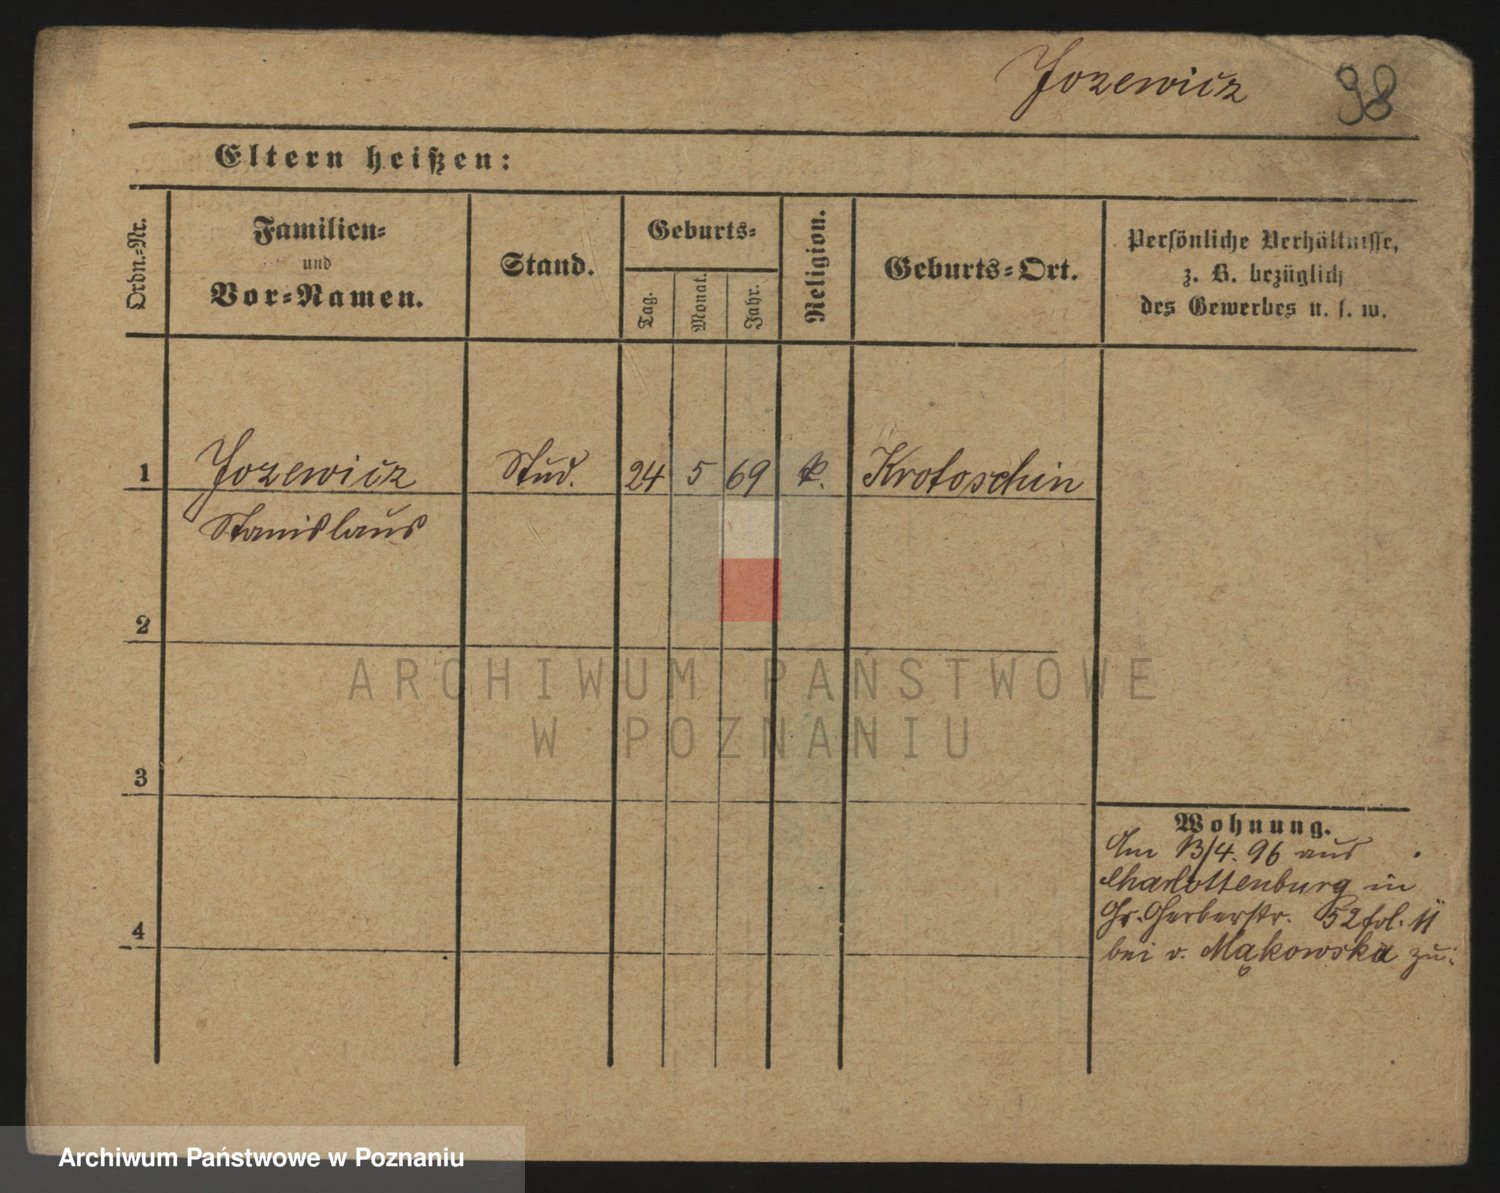 Jozewicz 98
Eltern heißen:
Ordn.-Nr.
Familien-
und
Vor-Namen.
Stand.
Geburts-
Tag.
Monat.
Jahr.
Religion.
Geburts-Ort.
Persönliche Verhältnisse,
z. B. bezüglich
des Gewerbes u. s. w.
1 Jozewicz Stud. 24 5 69 k. Krotoschin
Stanislaus
2
3
4
Wohnung.
Am 13/4. 96 aus
Charlottenburg in
Gr. Gerberstr. 52 fol. 11
bei v. Mąkowska zu.
ARCHIWUM PAŃSTWOWE
W POZNANIU
Archiwum Państwowe w Poznaniu